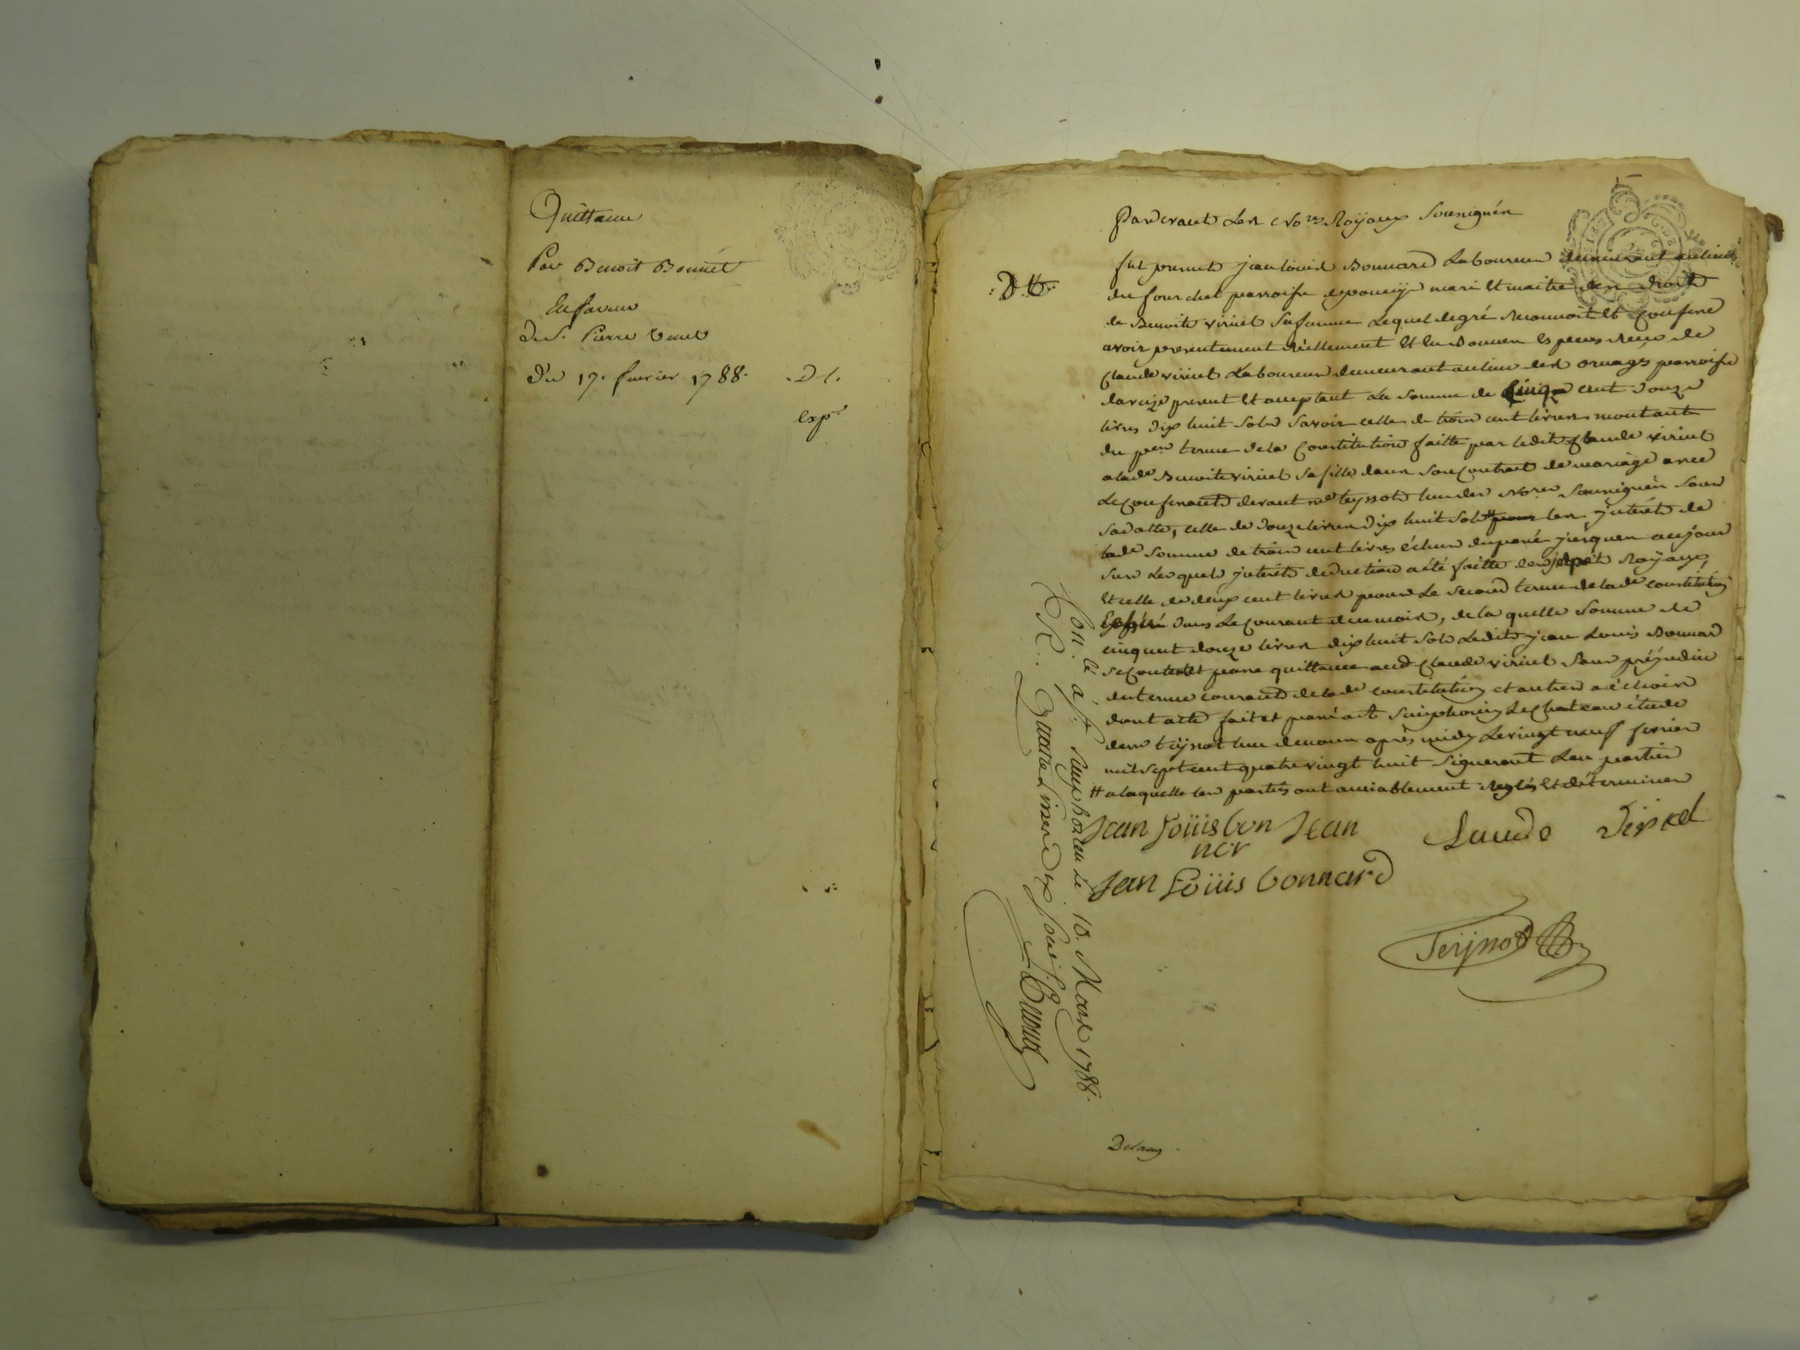 Quittance
Par Benoit Bonnet
En faveur
De Sr. Pierre
Du 17. fevrier 1788. D t.
expé
Pardevant Les No.res Royaux Soussignés
fut present jean louis Bonnard Laboureur demeurant au lieu
du fourchet parroisse mari et maitre des droits
de Benoite viriel sa femme Lequel de gré reconnoit et confesse
avoir presentement réellement et en Bonnes Especes Reçu de
Claude viriel Laboureur demeurant au lieu des parroisse
present et acceptant La somme de cinq cent douze
livres dix huit sols savoir celle de trois cent livres montant
du per. terme de la Constitution faitte par ledit Claude viriel
a lade. Benoite viriel sa fille dans son Contrat de mariage avec
Le Confessant devant me teyssot l'un des Nores. Soussignés sous
sa datte, celle de douze livres dix huit sols # pour les jnterêt de
lade. somme de trois cent livres échus du passé jusques au jour
sur Lesquels jnterêt deduction a été faitte des Royaux,
Et celle de deux cent livres pour Le second terme de lade. constitution
dans Le courant de ce mois, de la quelle somme de
cinq cent douze livres dix huit sols Ledit jean Louis Bonnard
se Contente et passe quittance aud. Claude viriel sans préjudice
du terme courant de lade. constitution et autres a échoir
dont acte fait et passé a st. Simphorien Le Chateau étude
de me teyssot l'un de nous après midy Le vingt neuf fevrier
mil sept cent quatre vingt huit signeront Les parties
# a laquelle les parties ont amiablement reglés et déterminer
Jean Loüis bon Jean
ner
Jean Loüis bonnard
Con.lé à St. Simphorien Le 10. Mars 1788.
R. Quatre Livres dix sous